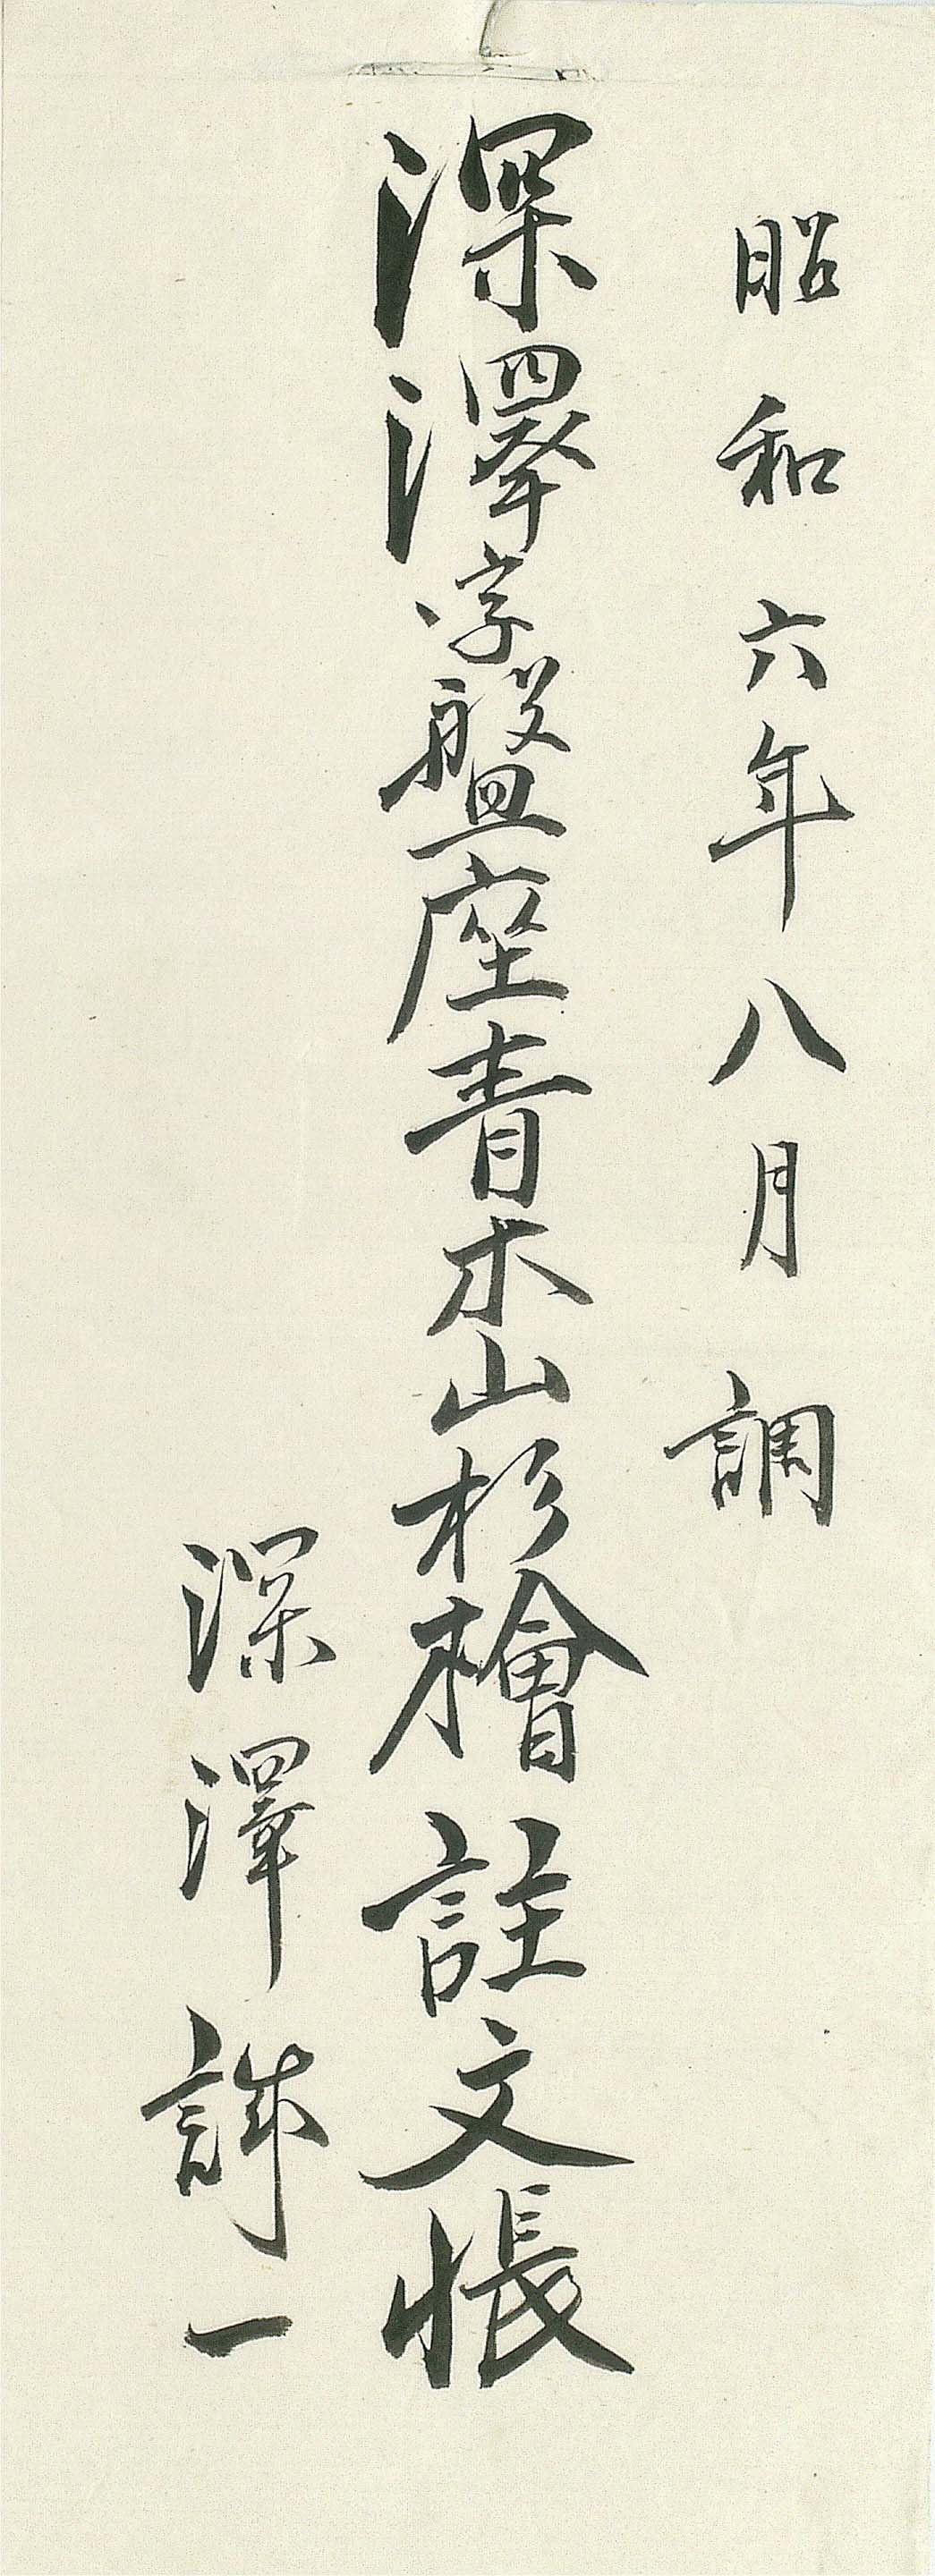 昭和六年八月 調
深澤字盤座青木山杉檜註文帳
深澤誠一